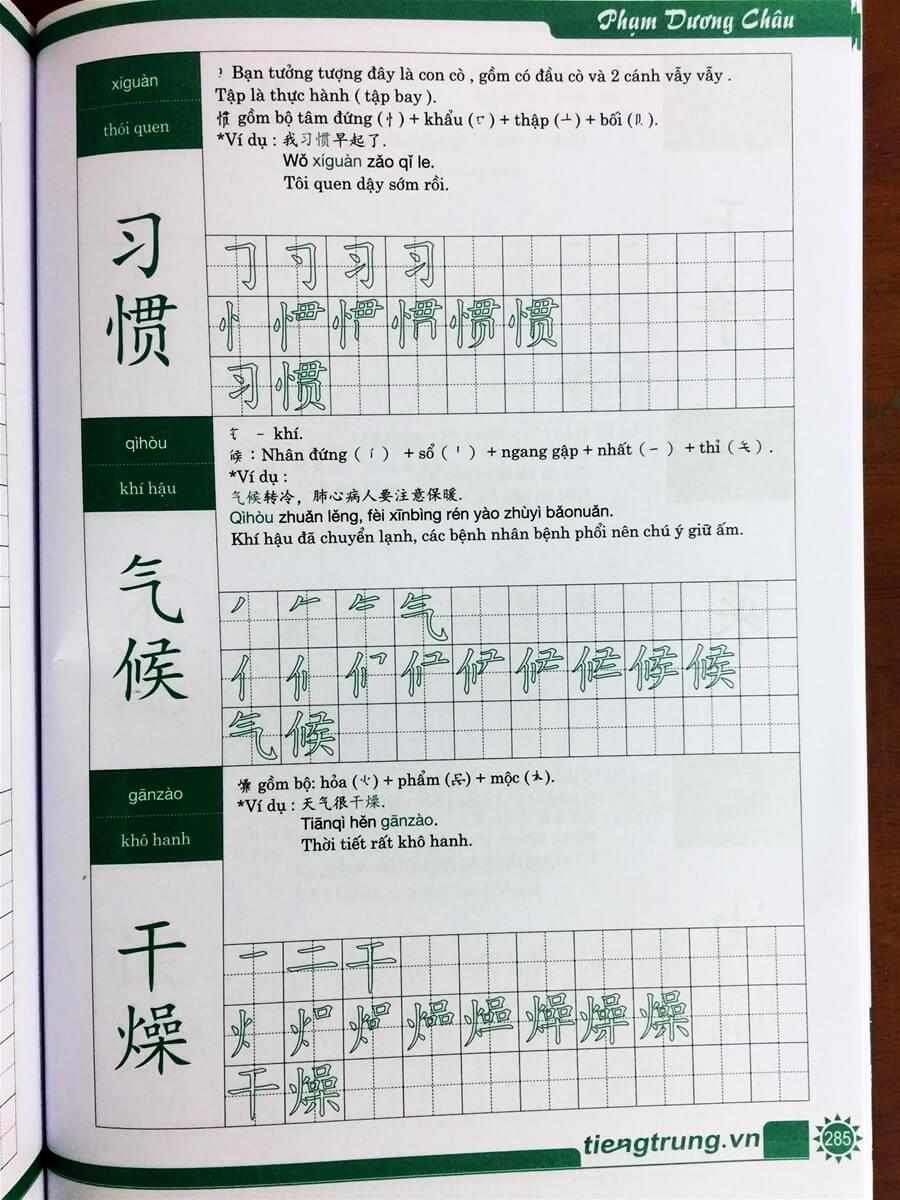 Phạm Dương Châu
xíguàn
thói quen
习
惯
Bạn tưởng tượng đây là con cò , gồm có đầu cò và 2 cánh vẫy vẫy .
Tập là thực hành ( tập bay ).
惯 gồm bộ tâm đứng (忄) + khẩu ( ) + thập ( ) + bối ( ).
*Ví dụ : 我习惯早起了.
Wǒ xíguàn zǎo qǐ le.
Tôi quen dậy sớm rồi.
习 习
惯 惯
习 惯
qìhòu
khí hậu
气
候
– khí.
候 : Nhân đứng ( 亻 ) + sổ ( 丨 ) + ngang gập + nhất ( 一 ) + thỉ ( 矢 ) .
*Ví dụ :
气候转冷，肺心病人要注意保暖.
Qìhòu zhuǎn lěng, fèi xīnbìng rén yào zhùyì bǎonuǎn.
Khí hậu đã chuyển lạnh, các bệnh nhân bệnh phổi nên chú ý giữ ấm.
气
候 候
气 候
gānzào
khô hanh
干
燥
燥 gồm bộ: hỏa (火) + phẩm (品) + mộc (木).
*Ví dụ : 天气很干燥.
Tiānqì hěn gānzào.
Thời tiết rất khô hanh.
一 二 干
燥
干 燥
tiengtrung.vn
285